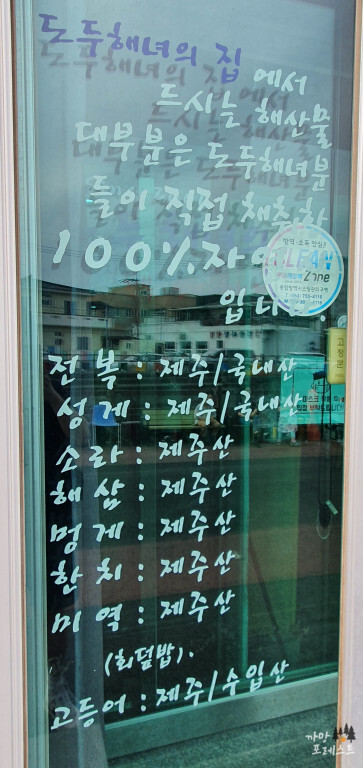 도두해녀의 집 에서
드시는 해산물
대부분은 도두해녀분
들이 직접 채취한
100%자연
입니다.
CLEAN
Zone
전복 : 제주/국내산
성게 : 제주/국내산
소라 : 제주산
해삼 : 제주산
멍게 : 제주산
한치 : 제주산
미역 : 제주산
(회덮밥).
고등어 : 제주/수입산
고정문
까망
포레스트